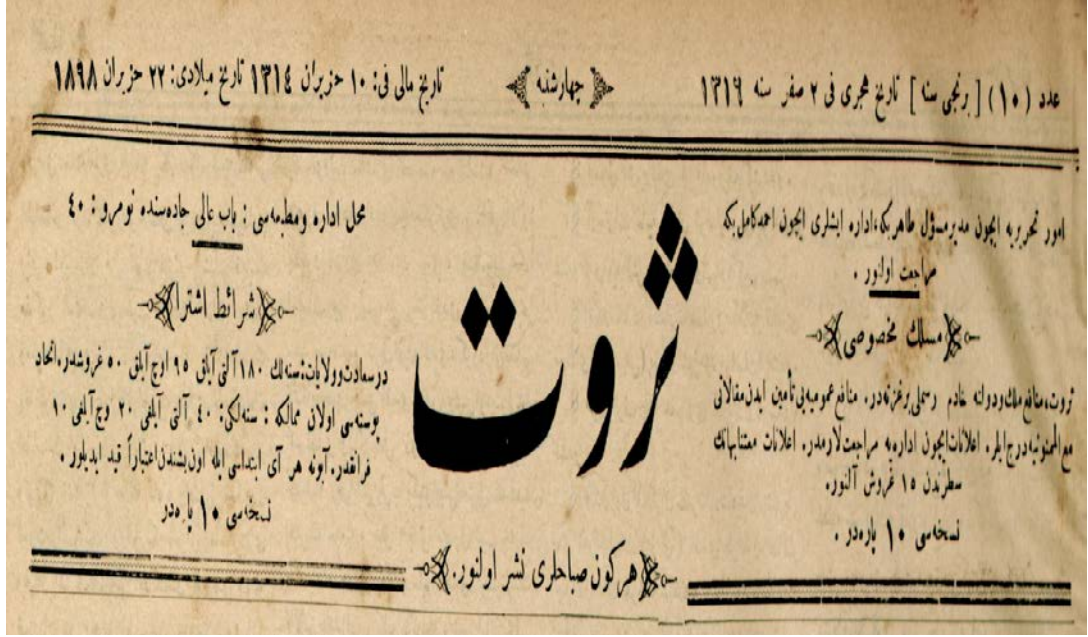 عدد (١٠) [ برنجى سنه ] تاريخ هجرى فى ٢ صفر سنه ١٣١٦
چهارشنبه
تاريخ مالى فى: ١٠ حزيران ١٣١٤ تاريخ ميلادى: ٢٢ حزيران ١٨٩٨
امور تحريريه ايچون مدير مسؤل طاهربكه، اداره ايشلرى ايچون احمدكامل بكه
مراجعت اولنور .
مسلك مخصوصى
ثروت، منافع ملك ودولته خادم رسملى برغزته در. منافع عموميه يى تأمين ايدن مقالاتى
مع الممنونيه درج ايلر. اعلانات ايچون اداره يه مراجعت لازمدر. اعلانات معتنابهانك
سطرندن ١٥ غروش آلنور.
نسخه سى ١٠ پاره در .
ثروت
محل اداره ومطبعه سى : باب عالى جاده سنده نومرو : ٤٠
شرائط اشترا
درسعادت وولايات: سنه لك ١٨٠ آلتى آيلق ٩٥ اوچ آيلق ٥٠ غروشدر. اتحاد
پوسته سى اولان ممالكه : سنه لكى: ٤٠ آلتى آيلغى ٢٠ وچ آيلغى ١٠
فرانقدر. آبونه هر آى ابتداسى ايله اون بشندن اعتباراً قيد ايديلور .
نسخه سى ١٠ پاره در
هركون صباحلرى نشر اولنور.